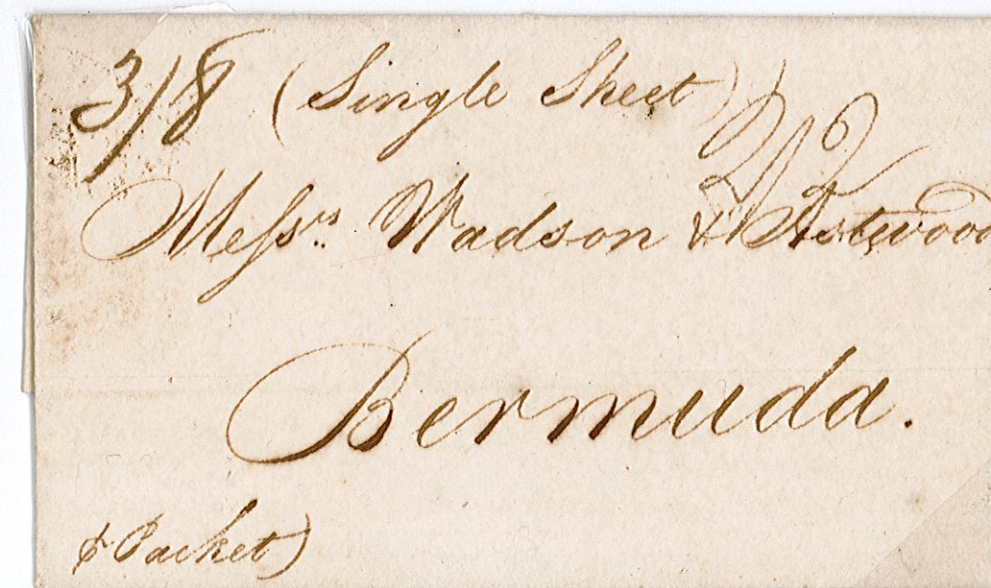 3/8 (Single Sheet)
2/2
Messrs. Wadson & Astwood
Bermuda.
⅌ Packet)